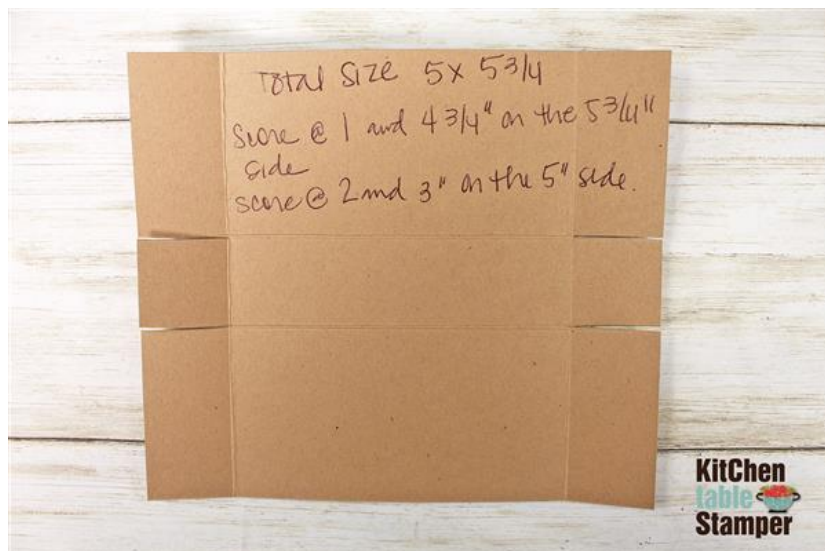 Total Size 5x 5 3/4
Score @ 1 and 4 3/4" on the 5 3/4"
side
score @ 2 and 3" on the 5" side.
KitChen
table
Stamper